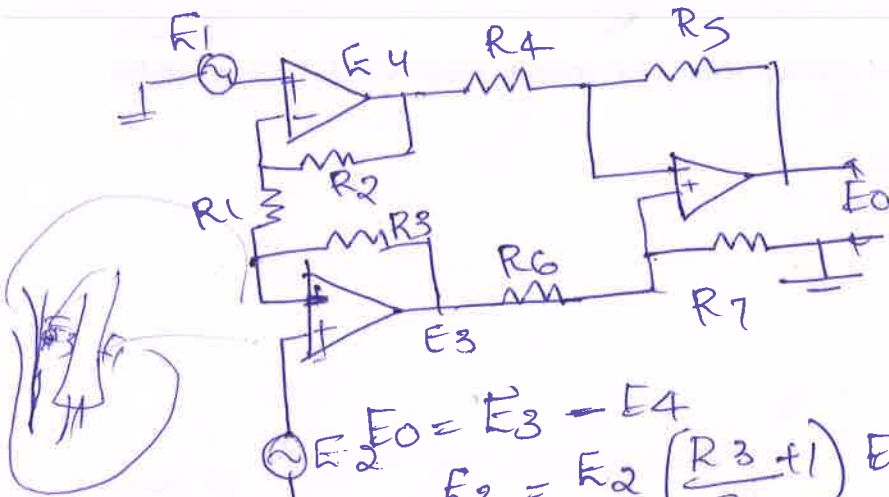 E1
E4
R4
R5
R2
R1
R3
R6
E0
R7
E3
E2
E0 = E3 - E4
E2 (R3 + 1) E